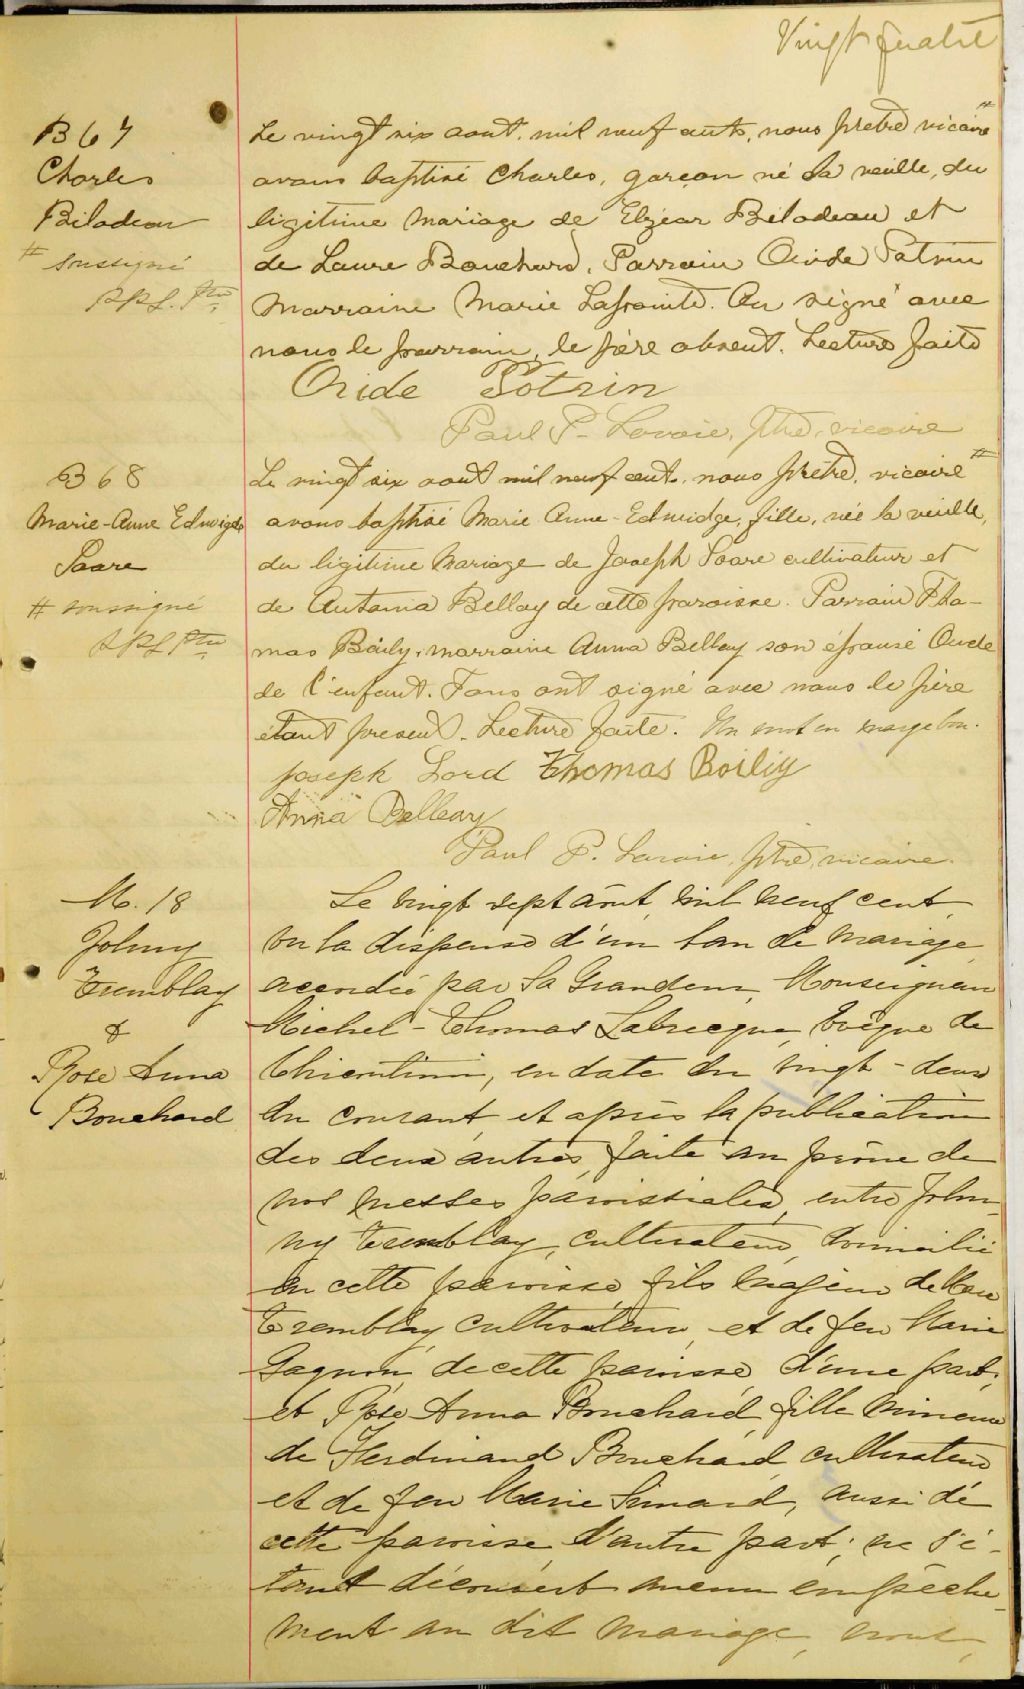 Vingt quatre
B 67
Charles
Biladeau
# soussigné
PPL. Ptre
Le vingt six aout, mil neuf cents, nous prêtre vicaire #
avons baptisé Charles, garçon né la veille, du
légitime mariage de Elzéar Biladeau et
de Laure Bouchard. Parrain Ovide Potvin
marraine Marie Lapointe. On signé avec
nous le parrain, le père absent. Lecture faite
Ovide Potvin
Paul P. Lavoie, ptre, vicaire
B 68
Marie-Anne Edwidge
Saare
# soussigné
PPL Ptre
Le vingt six aout mil neuf cent, nous prêtre, vicaire #
avons baptisé Marie Anne-Edwidge, fille, née la veille,
du légitime mariage de Joseph Soare cultivateur et
de Antonia Bellay de cette paroisse. Parrain Tho-
mas Boily, marraine Anna Bellay son épouse Oncle
de l'enfant. Tous ont signé avec nous le père
étant présent. Lecture faite. Un mot en marge bon.
Joseph Lord Thomas Boiliy
Anna Belleay
Paul P. Lavoie, ptre, vicaire.
M. 18
Johnny
Tremblay
&
Rose Anna
Bouchard
Le vingt sept août, mil neuf cent,
vu la dispense d'un ban de mariage
accordée par Sa Grandeur, Monseigneur
Michel-Thomas Labrecque, Evêque de
Chicoutimi, en date du vingt-deux
du courant, et après la publication
des deux autres, faite au prône de
nos messes paroissiales, entre John-
ny Tremblay, cultivateur, domicilié
en cette paroisse, fils majeur de
Tremblay, cultivateur, et de feu Marie
Gagnon, de cette paroisse d'une part;
et Rose Anna Bouchard, fille mineure
de Ferdinand Bouchard, cultivateur
et de feu Marie Simard, aussi de
cette paroisse d'autre part; ne s'é-
tant découvert aucun empêche-
ment au dit mariage, nous,